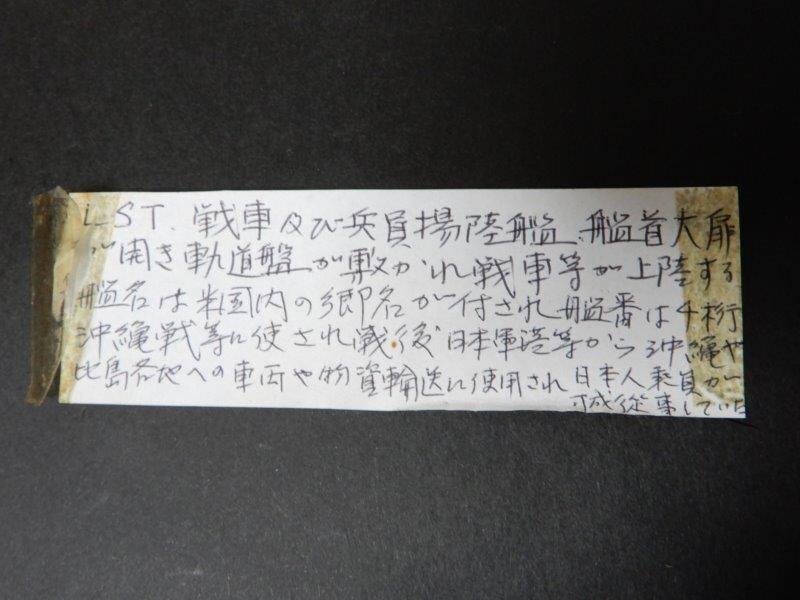 LST. 戦車及び兵員揚陸艦、艦首大扉
が開き軌道盤が敷かれ戦車等が上陸する
艦名は米国内の郷名が付され艦番は4桁
沖縄戦等に使され戦後日本軍港等から沖縄や
比島各地への車両や物資輸送に使用され日本人乗員が
可成従事していた